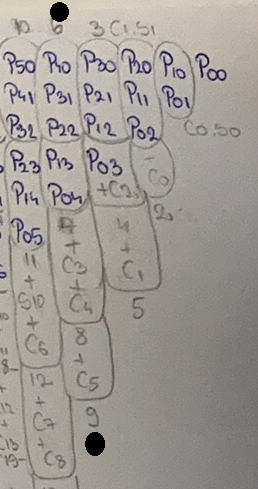 12 6 3 C1.S1
P50 P40 P30 P20 P10 P00
P41 P31 P21 P11 P01
P32 P22 P12 P02 C0.S0
P23 P13 P03 + C0
P14 P04 +C2
P05 + 4 2
11 + +
+ C3 C1
S10 + 5
+ C4
C6 8
12 +
+ C5
C7 9
+
C8